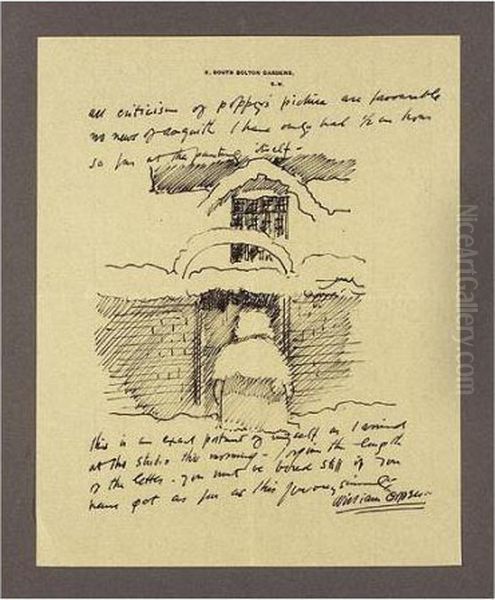 5, SOUTH BOLTON GARDENS,
S.W.
all criticism of poppy's picture are favourable
no news of Asquith I have only had ½ an hour
so far at the painting itself –
this is an exact portrait of myself as I arrived
at the studio this morning – forgive the length
of the letter – you must be bored stiff if you
have got as far as this
William Orpen
NiceArtGallery.com